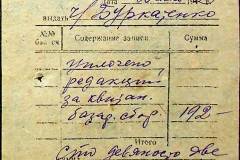 выдать Ч/Буркатенко
№№ Содержание записи Сумма
Уплочено
редакций
за квитан.
базар. сбор. 192-
Сто девяносто две